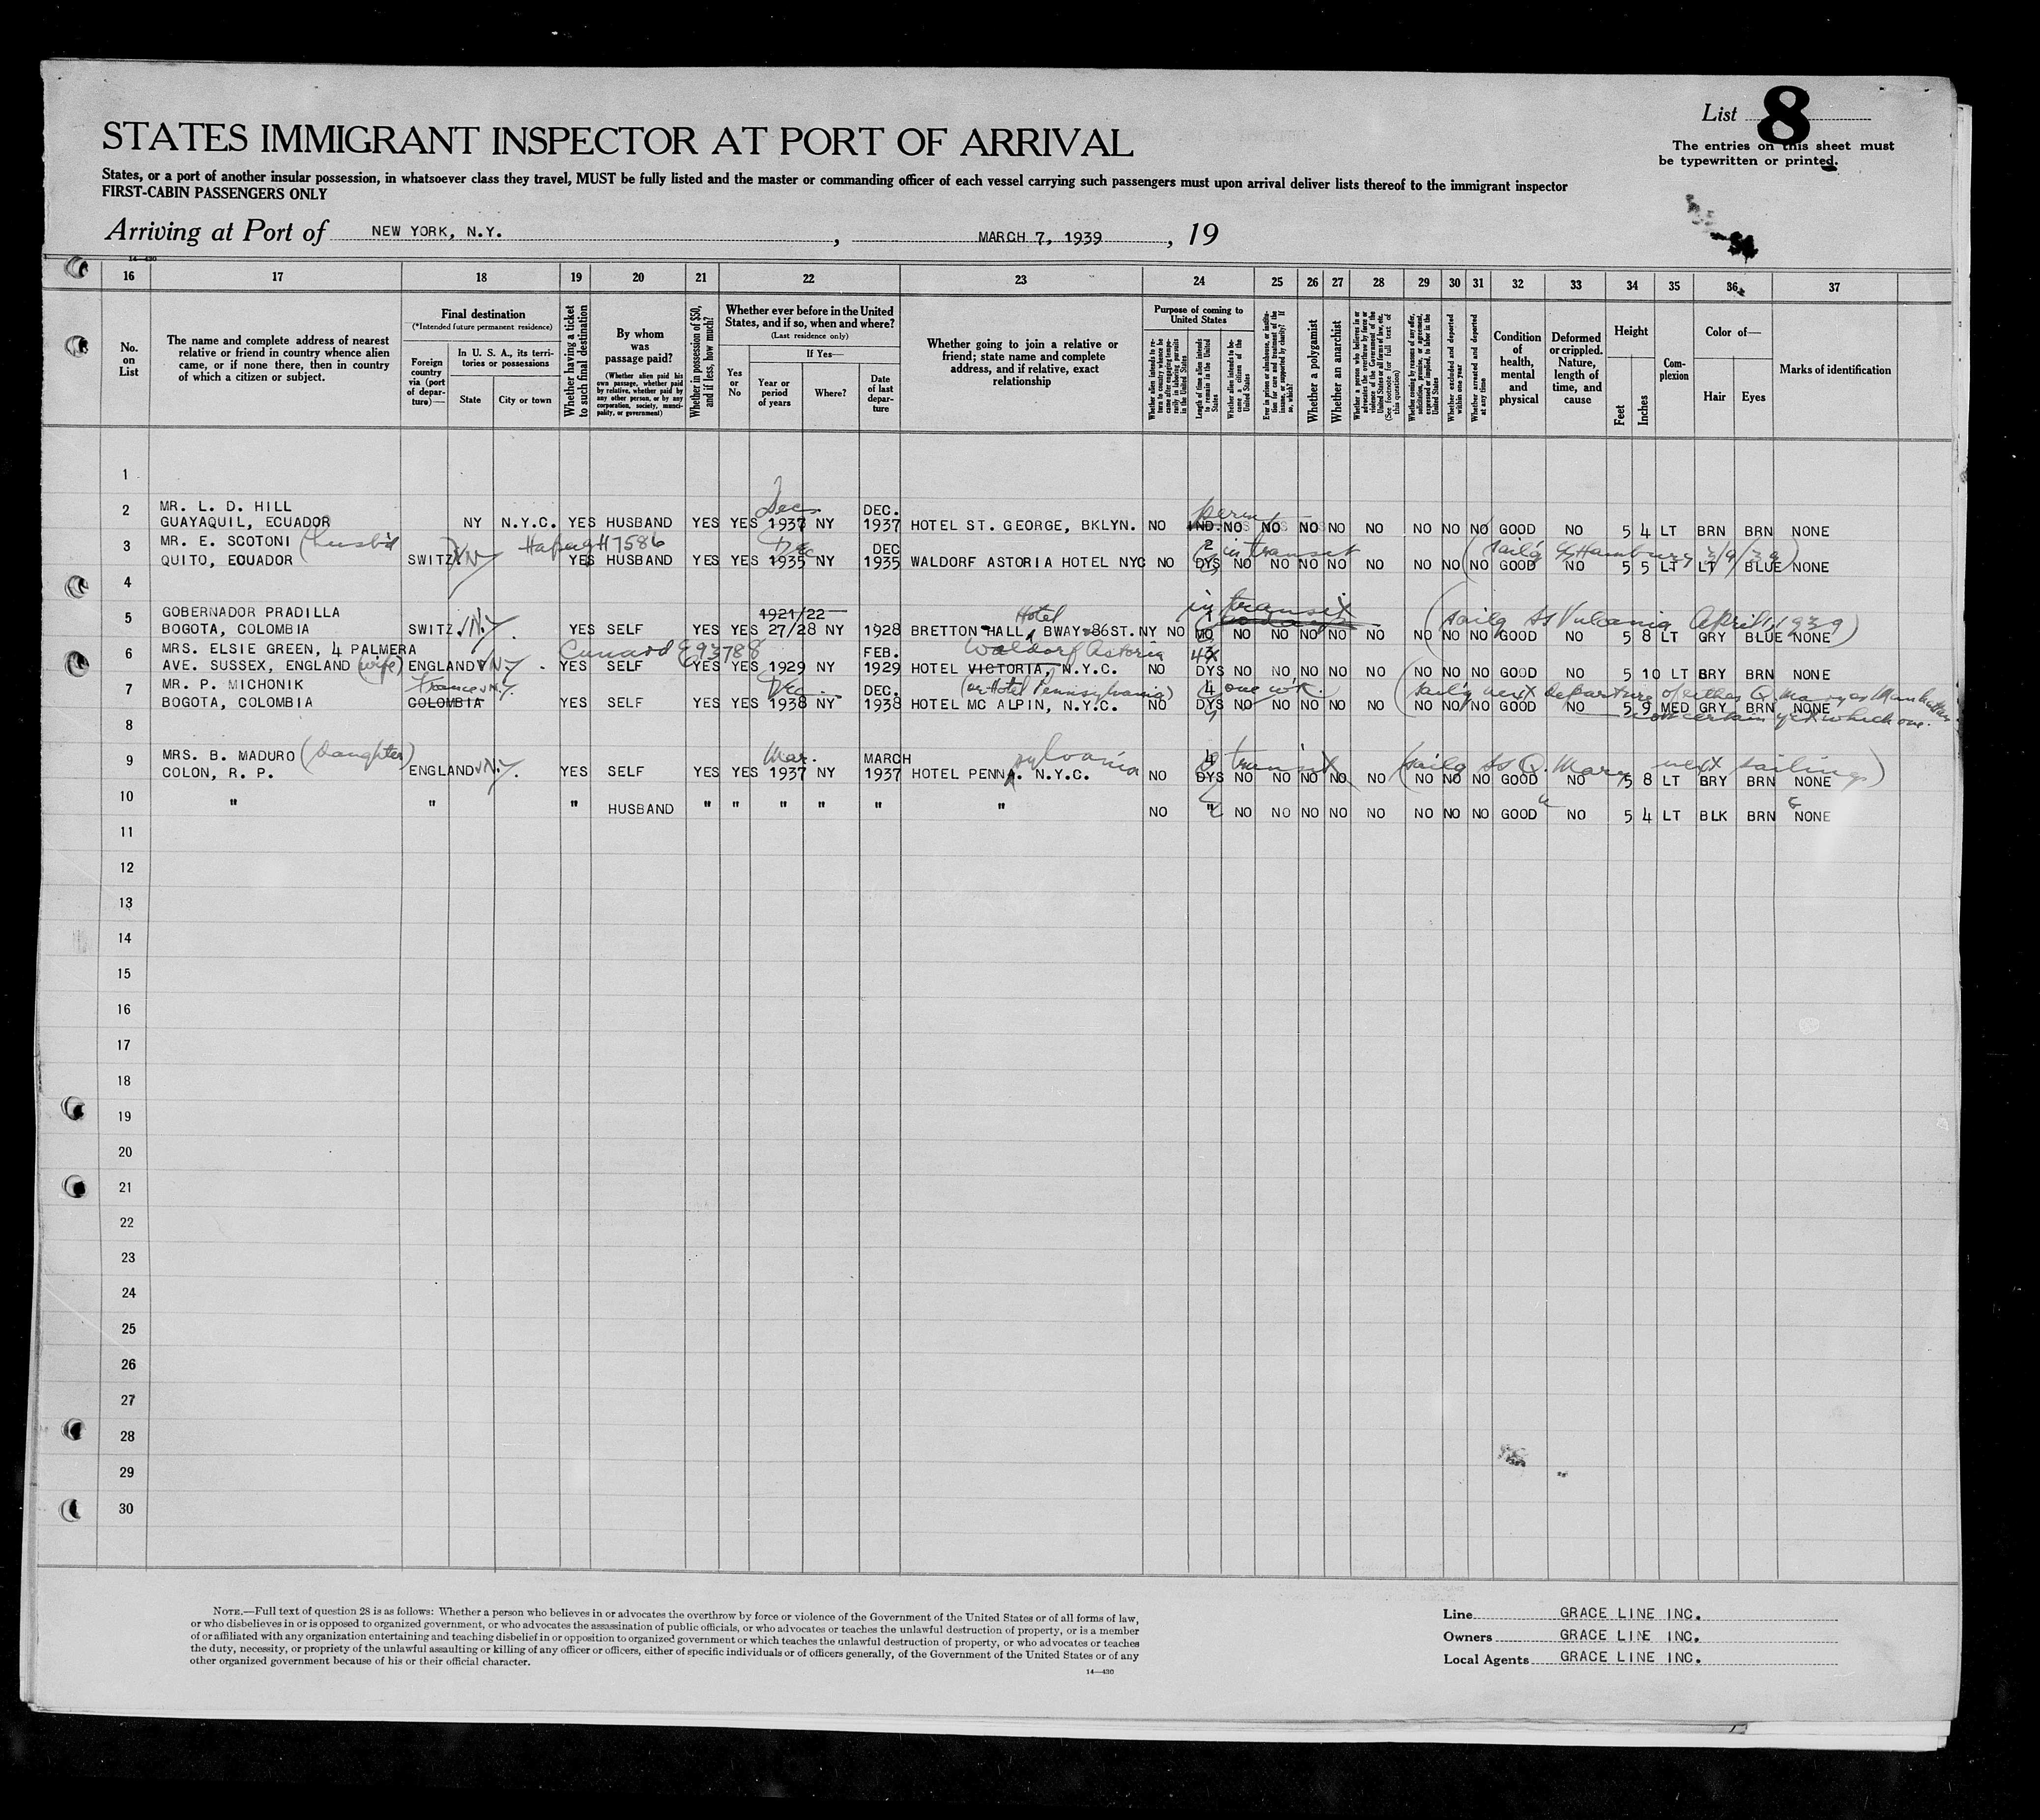 List 8
The entries on this sheet must
be typewritten or printed.
STATES IMMIGRANT INSPECTOR AT PORT OF ARRIVAL
States, or a port of another insular possession, in whatsoever class they travel, MUST be fully listed and the master or commanding officer of each vessel carrying such passengers must upon arrival deliver lists thereof to the immigrant inspector
FIRST-CABIN PASSENGERS ONLY
Arriving at Port of NEW YORK, N.Y. , MARCH 7, 1939 , 19
14—430
16 17 18 19 20 21 22 23 24 25 26 27 28 29 30 31 32 33 34 35 36 37
No. on List
The name and complete address of nearest relative or friend in country whence alien came, or if none there, then in country of which a citizen or subject.
Final destination
(*Intended future permanent residence)
Foreign country via (port of departure)—
In U. S. A., its territories or possessions
State
City or town
Whether having a ticket to such final destination
By whom was passage paid?
(Whether alien paid his own passage, whether paid by relative, whether paid by any other person, or by any corporation, society, municipality, or government)
Whether in possession of $50, and if less, how much?
Whether ever before in the United States, and if so, when and where?
(Last residence only)
If Yes—
Yes or No
Year or period of years
Where?
Date of last departure
Whether going to join a relative or friend; state name and complete address, and if relative, exact relationship
Purpose of coming to United States
Length of time alien intends to remain in the United States
Whether alien intends to become a citizen of the United States
Whether a polygamist
Whether an anarchist
Whether excluded and deported within one year
Whether arrested and deported at any time
Condition of health, mental and physical
Deformed or crippled. Nature, length of time, and cause
Height
Feet
Inches
Complexion
Color of—
Hair
Eyes
Marks of identification
1
Dec perm
2 MR. L. D. HILL DEC.
GUAYAQUIL, ECUADOR NY N.Y.C. YES HUSBAND YES YES 1937 NY 1937 HOTEL ST. GEORGE, BKLYN. NO IND. NO NO NO NO NO NO NO NO GOOD NO 5 4 LT BRN BRN NONE
3 MR. E. SCOTONI (husb'd Hapag H7586 Dec DEC 2 in transit (sail'g SS Hamburg 3/9/39)
QUITO, ECUADOR SWITZ. YES HUSBAND YES YES 1935 NY 1935 WALDORF ASTORIA HOTEL NYC NO DYS NO NO NO NO NO NO NO NO GOOD NO 5 5 LT LT BLUE NONE
4
5 GOBERNADOR PRADILLA 1921/22 Hotel 1 in transit (sailg SS Vulcania April 1, 1939)
BOGOTA, COLOMBIA SWITZ. v N.Y. YES SELF YES YES 27/28 NY 1928 BRETTON HALL, BWAY-86ST.NY NO MO NO NO NO NO NO NO NO NO GOOD NO 5 8 LT GRY BLUE NONE
6 MRS. ELSIE GREEN, 4 PALMERA Cunard E93788 FEB. Waldorf Astoria
AVE. SUSSEX, ENGLAND (wife) ENGLAND v N.Y. YES SELF YES YES 1929 NY 1929 HOTEL VICTORIA, N.Y.C. NO DYS NO NO NO NO NO NO NO NO GOOD NO 5 10 LT BRY BRN NONE
7 MR. P. MICHONIK France v N.Y. Dec DEC. (or Hotel Pennsylvania) 4 one wk. (sail'g next departure of either Q. Mary or Manhattan
BOGOTA, COLOMBIA COLOMBIA YES SELF YES YES 1938 NY 1938 HOTEL MC ALPIN, N.Y.C. NO DYS NO NO NO NO NO NO NO NO GOOD NO 5 9 MED GRY BRN NONE
not certain yet which one.
8
9 MRS. B. MADURO (daughter) Mar. MARCH sylvania transit (sailg SS Q. Mary next sailing)
COLON, R. P. ENGLAND v N.Y. YES SELF YES YES 1937 NY 1937 HOTEL PENN. N.Y.C. NO DYS NO NO NO NO NO NO NO NO GOOD NO 5 8 LT BRY BRN NONE
10 " " " HUSBAND " " " " " " NO " NO NO NO NO NO NO NO NO GOOD NO 5 4 LT BLK BRN NONE
11
12
13
14
15
16
17
18
19
20
21
22
23
24
25
26
27
28
29
30
NOTE.—Full text of question 28 is as follows: Whether a person who believes in or advocates the overthrow by force or violence of the Government of the United States or of all forms of law,
or who disbelieves in or is opposed to organized government, or who advocates the assassination of public officials, or who advocates or teaches the unlawful destruction of property, or is a member
of or affiliated with any organization entertaining and teaching disbelief in or opposition to organized government or which teaches the unlawful destruction of property, or who advocates or teaches
the duty, necessity, or propriety of the unlawful assaulting or killing of any officer or officers, either of specific individuals or of officers generally, of the Government of the United States or of any
other organized government because of his or their official character.
14—430
Line GRACE LINE INC.
Owners GRACE LINE INC.
Local Agents GRACE LINE INC.